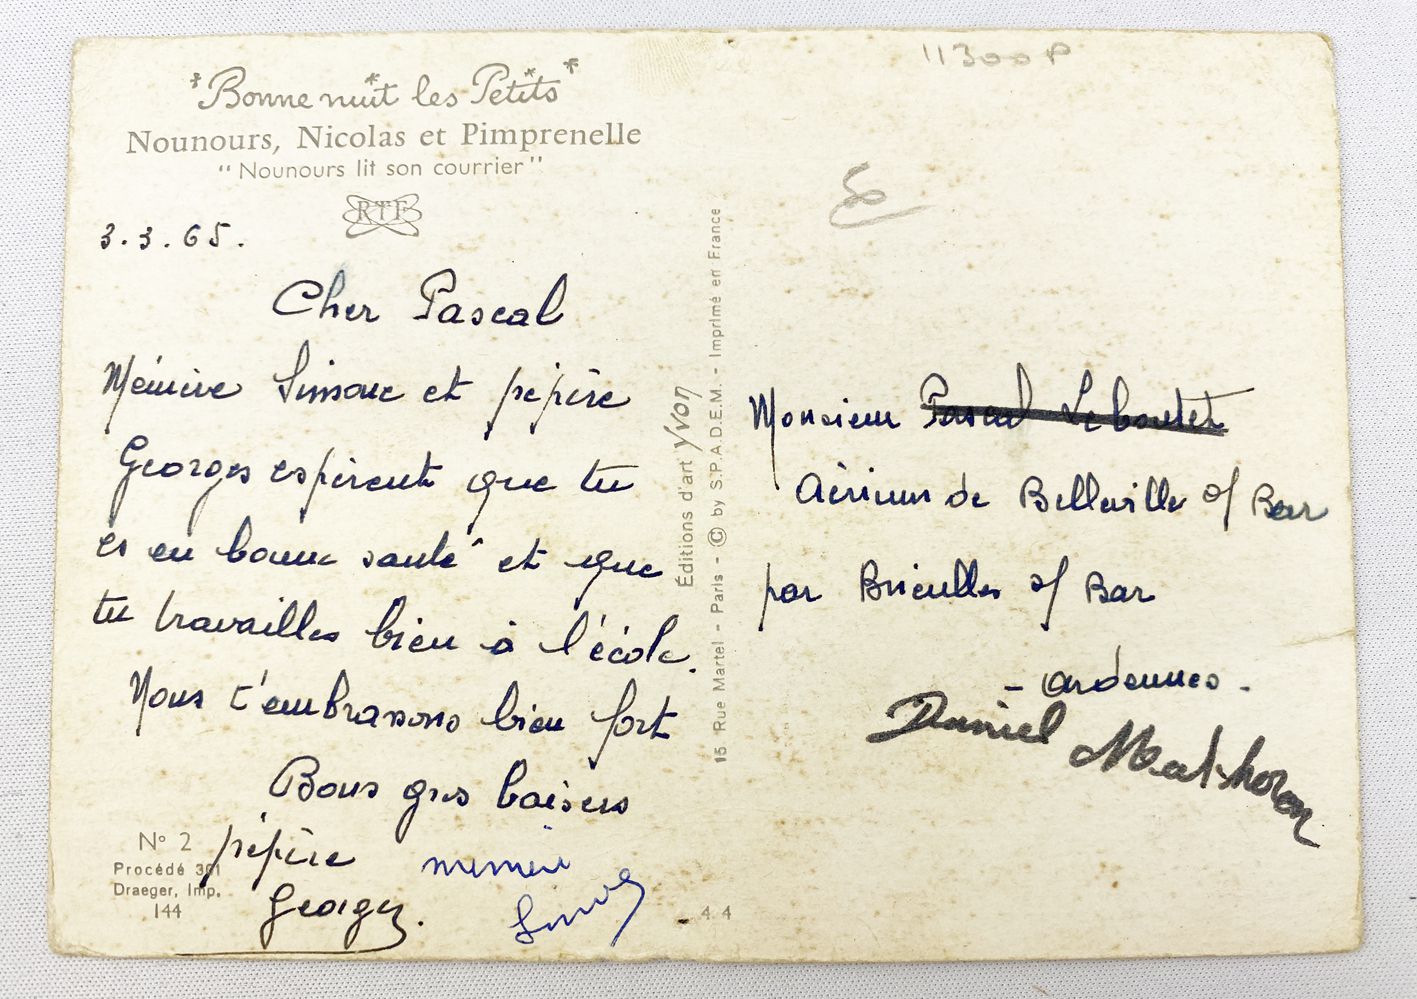 *Bonne nuit les Petits*
Nounours, Nicolas et Pimprenelle
"Nounours lit son courrier"
RTF
3.3.65.
Cher Pascal
Mémère Simone et pépère
Georges espèrent que tu
es en bonne santé et que
tu travailles bien à l'école.
Nous t'embrassons bien fort
Bons gros baisers
pépère mémère
Georges. Simone
N° 2
Procédé 301
Draeger, Imp.
144
Éditions d'art Yvon
15 Rue Martel - Paris - © by S.P.A.D.E.M. - Imprimé en France
4.4
11300P
Monsieur Pascal Leboutet
Aérium de Belleville s/ Bar
par Brieulles s/ Bar
- Ardennes -
Daniel